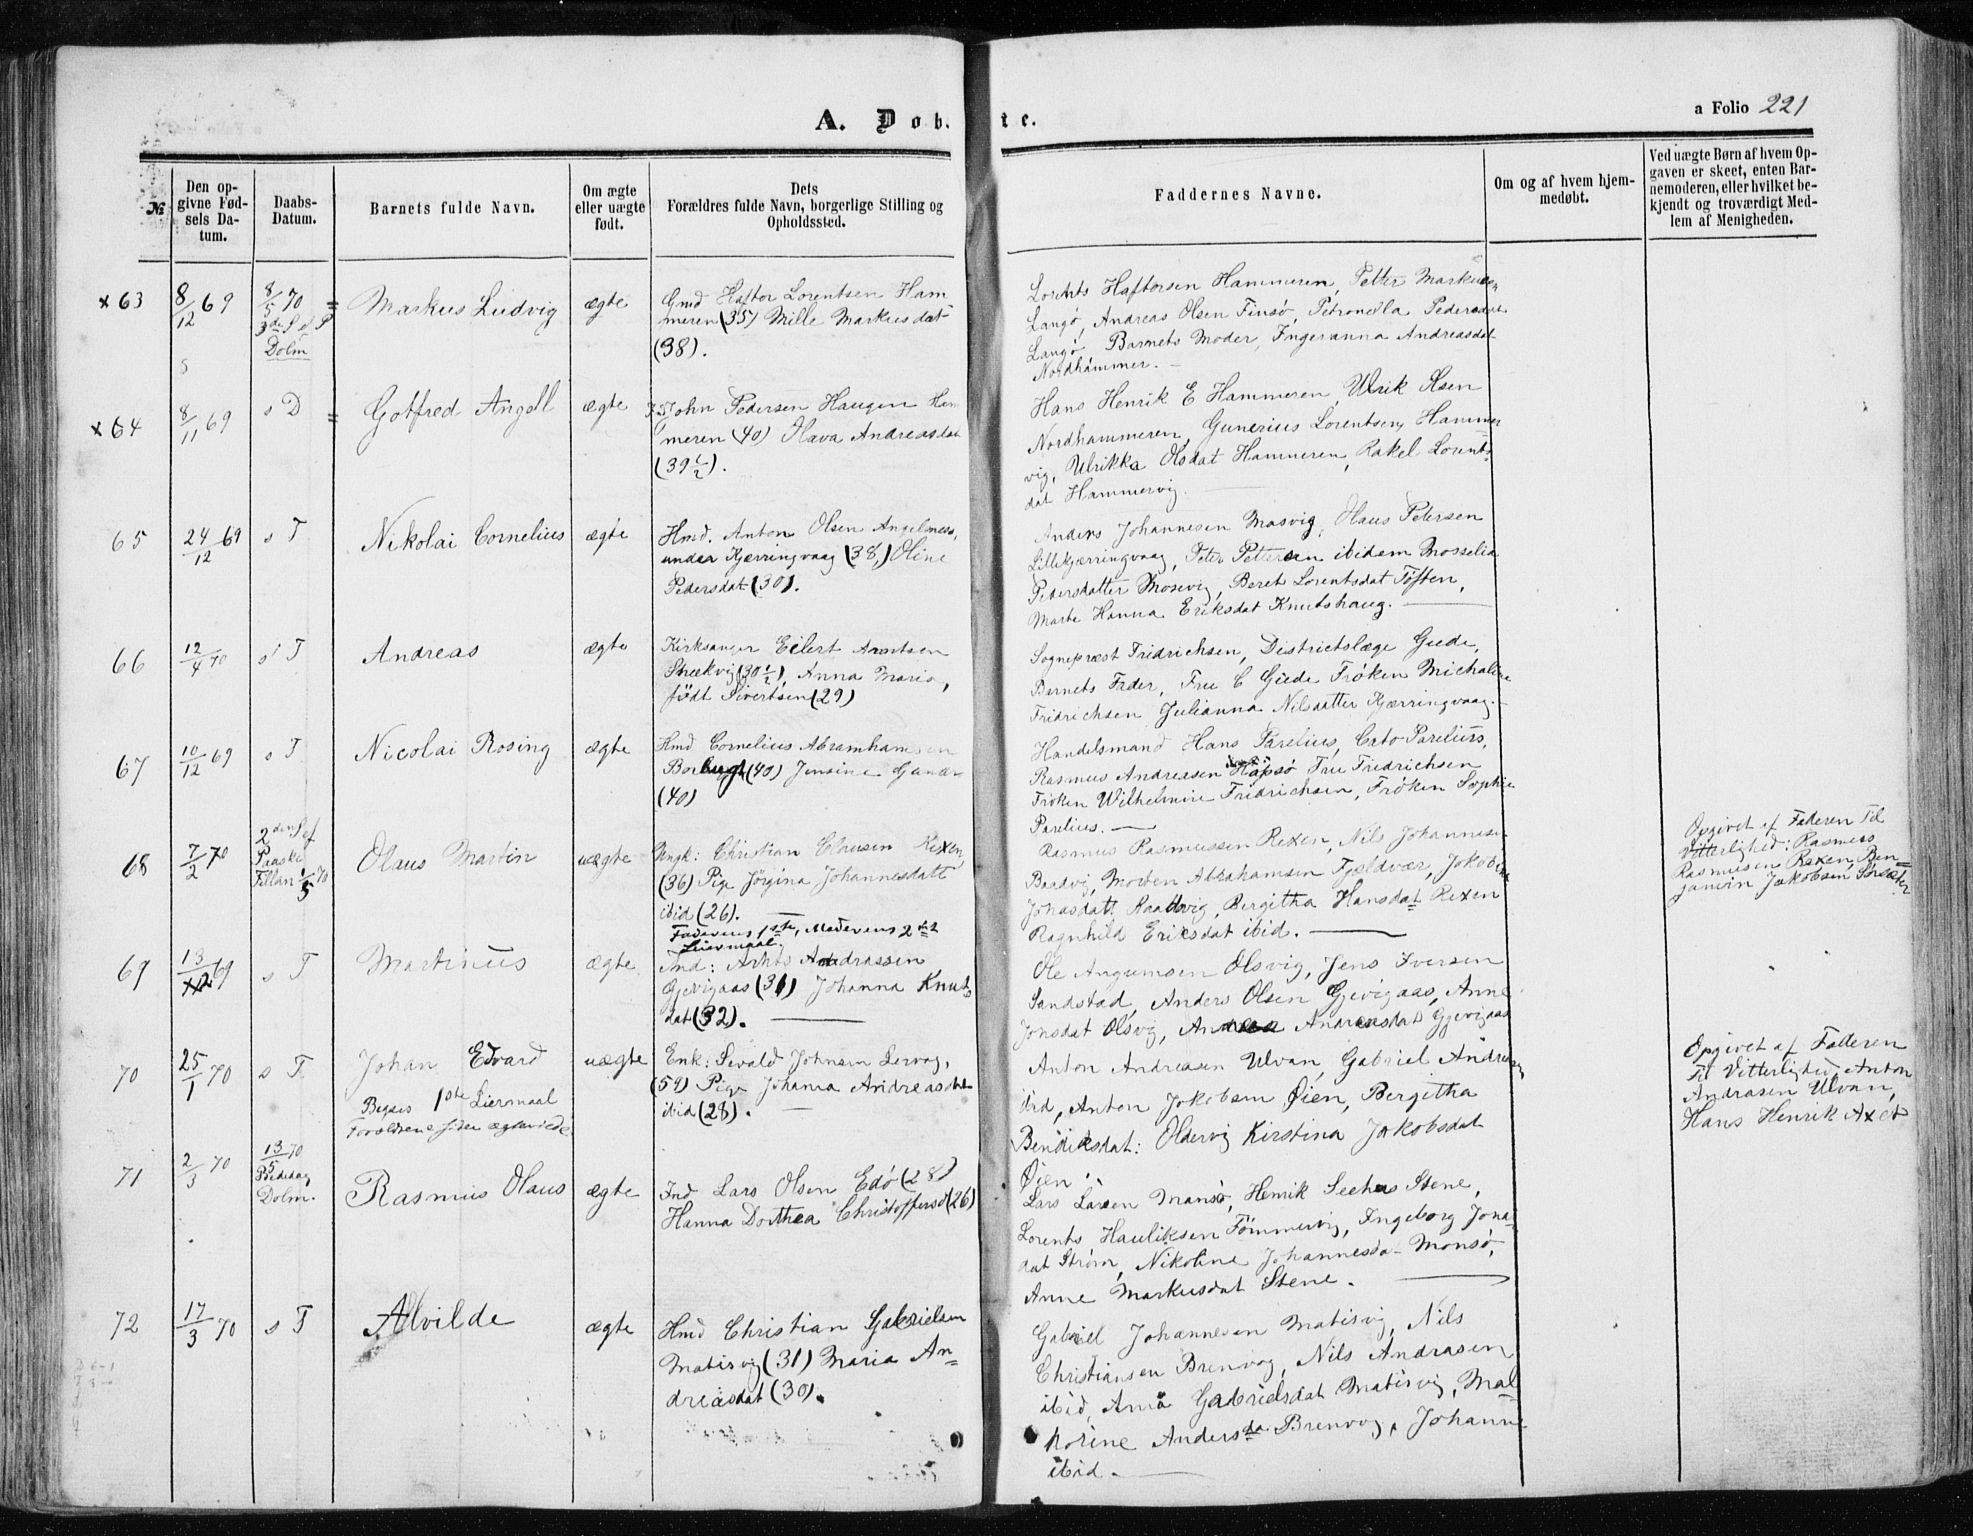 A. Døb. te.
a Folio 221
№
Den op-
givne Fød-
sels Da-
tum.
Daabs-
Datum.
Barnets fulde Navn.
Om ægte
eller uægte
født.
Dets
Forældres fulde Navn, borgerlige Stilling og
Opholdssted.
Faddernes Navne.
Om og af hvem hjem-
medøbt.
Ved uægte Børn af hvem Op-
gaven er skeet, enten Bar-
nemoderen, eller hvilket be-
kjendt og troværdigt Med-
lem af Menigheden.
x 63
8/12 69
8/5 70
3de S ef P
Dolm
Markus Ludvig
ægte
Gmd Haftor Lorentsen Ham-
meren (35) Mille Markusdat
(38).
Lorents Haftorsen Hammeren, Petter Markusen
Langø, Andreas Olsen Finsø, Petronella Pedersdat
Langø, Barnets Moder, Ingeranna Andreasdat
Nordhammer.
x 64
8/11 69
s D
Gotfred Angell
ægte
John Pedersen Haugen Ham
meren (40) Olava Andreasdat
(39 1/2).
Hans Henrik E Hammeren, Ulrik Olsen
Nordhammeren, Gunerius Lorentsen Hammer
vig, Ulrikka Olsdat Hammeren, Rakel Lorents
dat Hammervig.
65
24/12 69
s T
Nikolai Cornelius
ægte
Hmd. Anton Olsen Angelsness,
under Kjærringvaag (38,) Oline
Pedersdat (30).
Anders Johannesen Masvig, Olaus Petersen
Lillekjærringvaag, Peter Pettersen ibidem Mosselia
Pedersdatter Mosevig, Beret Lorentsdat Tøften,
Marte Hanna Eriksdat Knutshaug.
66
12/4 70
s T
Andreas
ægte
Kirksanger Eilert Arntsen
Strækvig (30 1/2), Anna Maria,
født Sivertsen (29)
Sognepræst Fridrichsen, Districtslæge Guede,
Barnets Fader, Fru C Guede Frøken Michaline
Fridrichsen, Julianna Nilsdatter Kjærringvaag.
67
10/12 69
s T
Nicolai Rosing
ægte
Hmd Cornelius Abramhamsen
(40) Jensine Gunder
(40)
Handelsmand Hans Parelius, Cato Parelius,
Rasmus Andreasen Hapsø Fru Fridrichsen
Frøken Wilhelmine Fridrichsen, Frøken Sophie
Parelius.
68
7/2 70
2den S ef
Paaske
Fillan 1/5 70
Olaus Martin
uægte
Ungk: Christian Clausen Rexen
(36) Pige Jørgina Johannesdatt
ibid (26).
Faderens 1ste, Moderens 2det
Leiermaal.
Rasmus Rasmussen Rexen, Nils Johannesen
Baadvig, Morten Abrahamsen Fjeldvær, Jokobine
Johasdatt Raadvig, Bergitha Hansdat Rexen
Ragnhild Eriksdat ibid.
Opgivet af Faderen Til
Vitterlighed: Rasmus
Rasmussen Rexen, Ben=
jamin Jakobsen Stræter
69
13/12 69
s T
Martinus
ægte
Ind: Arnts Andrassen
Gjevigaas (31) Johanna Knuts
dat (32).
Ole Angumsen Olsvig, Jens Iversen
Sandstad, Anders Olsen Gjevigaas, Anne
Jonsdat Olsvig, Andrea Andreasdat Gjevigaas
70
25/1 70
s T.
Johan Edvard
Begges 1ste Liermaal
Forældrene siden ægteviede
uægte
Enk: Sivald Johnsen Lervag,
(59) Pige Johanna Andreasdat
ibid (28).
Anton Andreasen Ulvan, Gabriel Andreasen
ibid, Anton Jokobsen Øien, Bergitha
Bendiksdat: Oldervig Kirstina Jakobsdat
Øien.
Opgivet af Faderen
Til Vitterlighed, Anton
Andrasen Ulvan,
Hans Henrik Axet
71
2/3 70
13/5 70
Bededag
Dolm.
Rasmus Olaus
ægte
Ind Lars Olsen Edø (28)
Hanna Dorthea Christoffersd (26)
Lars Larsen Mansø, Henrik Seehus Stene,
Lorents Hauliksen Tømmervig, Ingeborg Jona-
dat Strøm, Nikoline Johannesda- Monsø,
Anne Markusdat Stene.
72
17/3 70
s T
Alvilde
ægte
Hmd Christian Gabrielsen
Matisvig (31) Maria An=
dreasdat (30).
Gabriel Johannesen Matisvig, Nils
Christiansen Brenvog, Nils Andrasen
ibid, Ana Gabrielsdat Matisvig, Mal
korine Andersda Brenvog, Johanne
ibid.